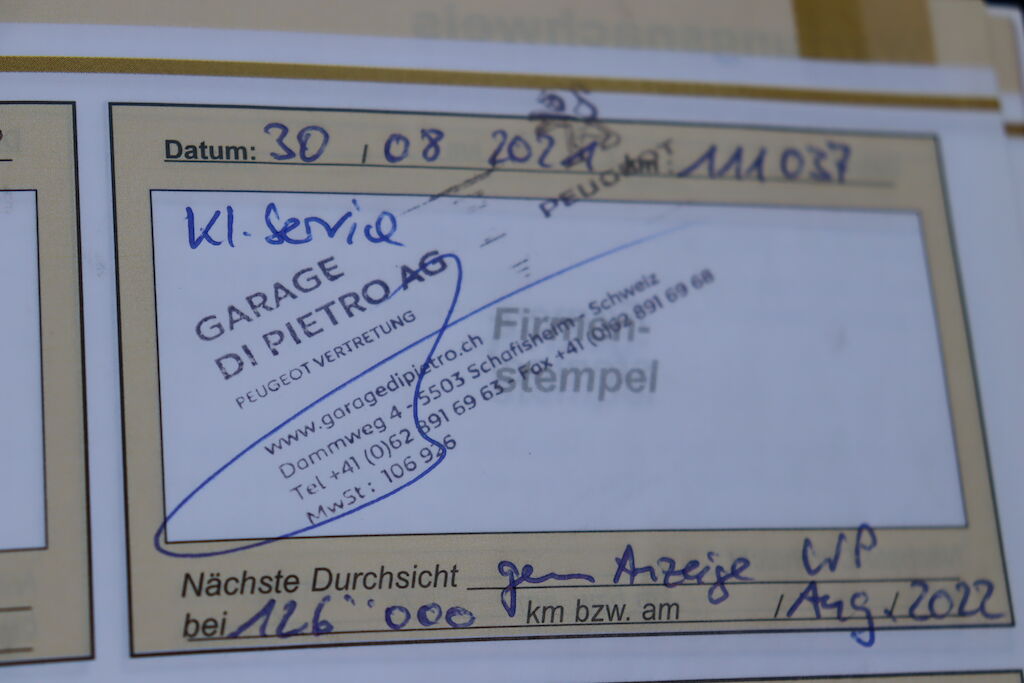 Datum: 30 / 08 2021 km: 111 037
PEUGEOT
Kl. Service
GARAGE
DI PIETRO AG
PEUGEOT VERTRETUNG
Firmen-
stempel
www.garagedipietro.ch
Dammweg 4 - 5503 Schafisheim - Schweiz
Tel +41 (0)62 891 69 63 - Fax +41 (0)62 891 69 68
MwSt: 106 926
Nächste Durchsicht gem Anzeige
bei 126'000 km bzw. am / Aug / 2022